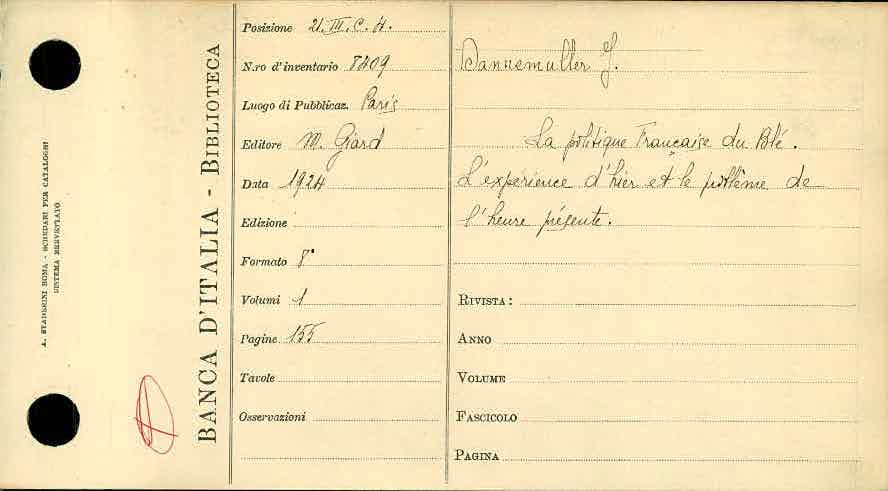 A. STADERINI ROMA - SCHEDARI PER CATALOGHI
SISTEMA BREVETTATO
BANCA D'ITALIA - BIBLIOTECA
Posizione 21. III. C. 4.
N.ro d'inventario 8209
Luogo di Pubblicaz. Paris
Editore M. Giard
Data 1924
Edizione
Formato 8°
Volumi 1
Pagine 155
Tavole
Osservazioni
Dannemuller J.
La politique Française du Blé.
L'expérience d'hier et le problème de
l'heure présente.
RIVISTA:
ANNO
VOLUME
FASCICOLO
PAGINA